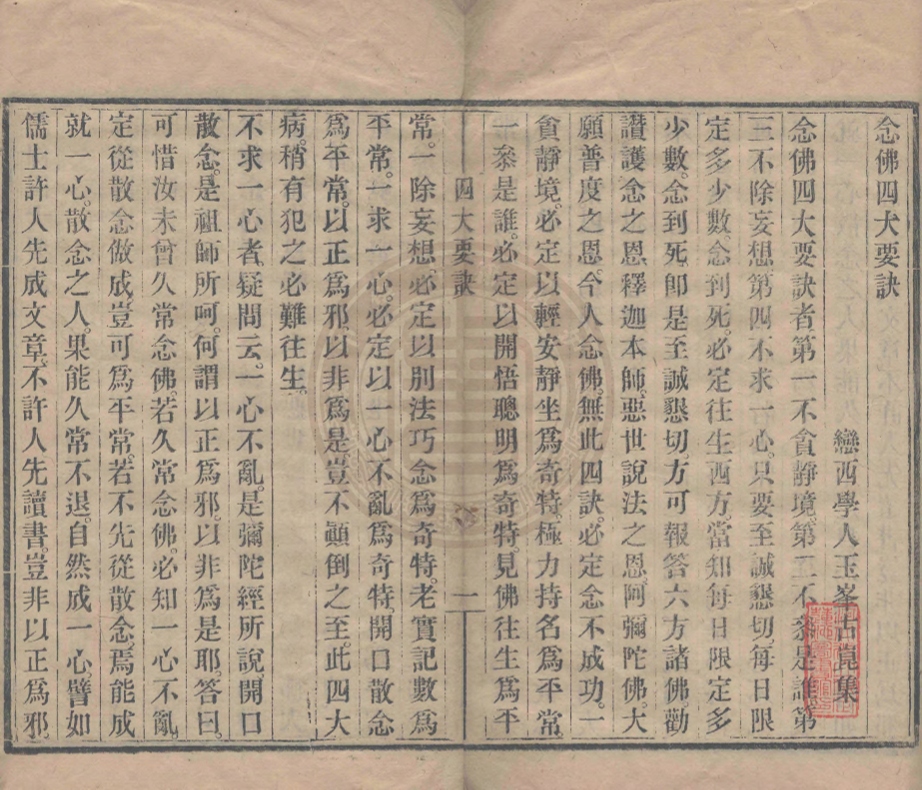 念佛四大要訣
巒西學人玉峯古崑集
念佛四大要訣者第一不貪靜境。第二不叅是誰。第
三不除妄想第四不求一心。只要至誠懇切。每日限
定多少數念到死。必定往生西方。當知每日限定多
少數。念到死。卽是至誠懇切。方可報答六方諸佛勸
讃護念之恩。釋迦本師。惡世說法之恩。阿彌陀佛。大
願普度之恩。今人念佛。無此四訣。必定念不成功。一
貪靜境。必定以輕安靜坐爲奇特。極力持名爲平常。
一叅是誰。必定以開悟聰明爲奇特。見佛往生爲平
四大要訣
一
常。一除妄想。必定以別法巧念爲奇特。老實記數爲
平常。一求一心。必定以一心不亂爲奇特。開口散念
爲平常。以正爲邪。以非爲是。豈不顚倒之至。此四大
病。稍有犯之必難往生。
不求一心者。疑問云。一心不亂。是彌陀經所說。開口
散念。是祖師所呵。何謂以正爲邪。以非爲是耶。答曰。
可惜汝未曾久常念佛。若久常念佛。必知一心不亂。
定從散念做成。豈可爲平常。若不先從散念。焉能成
就一心。散念之人。果能久常不退。自然成一心。譬如
儒士許人先成文章。不許人先讀書。豈非以正爲邪。